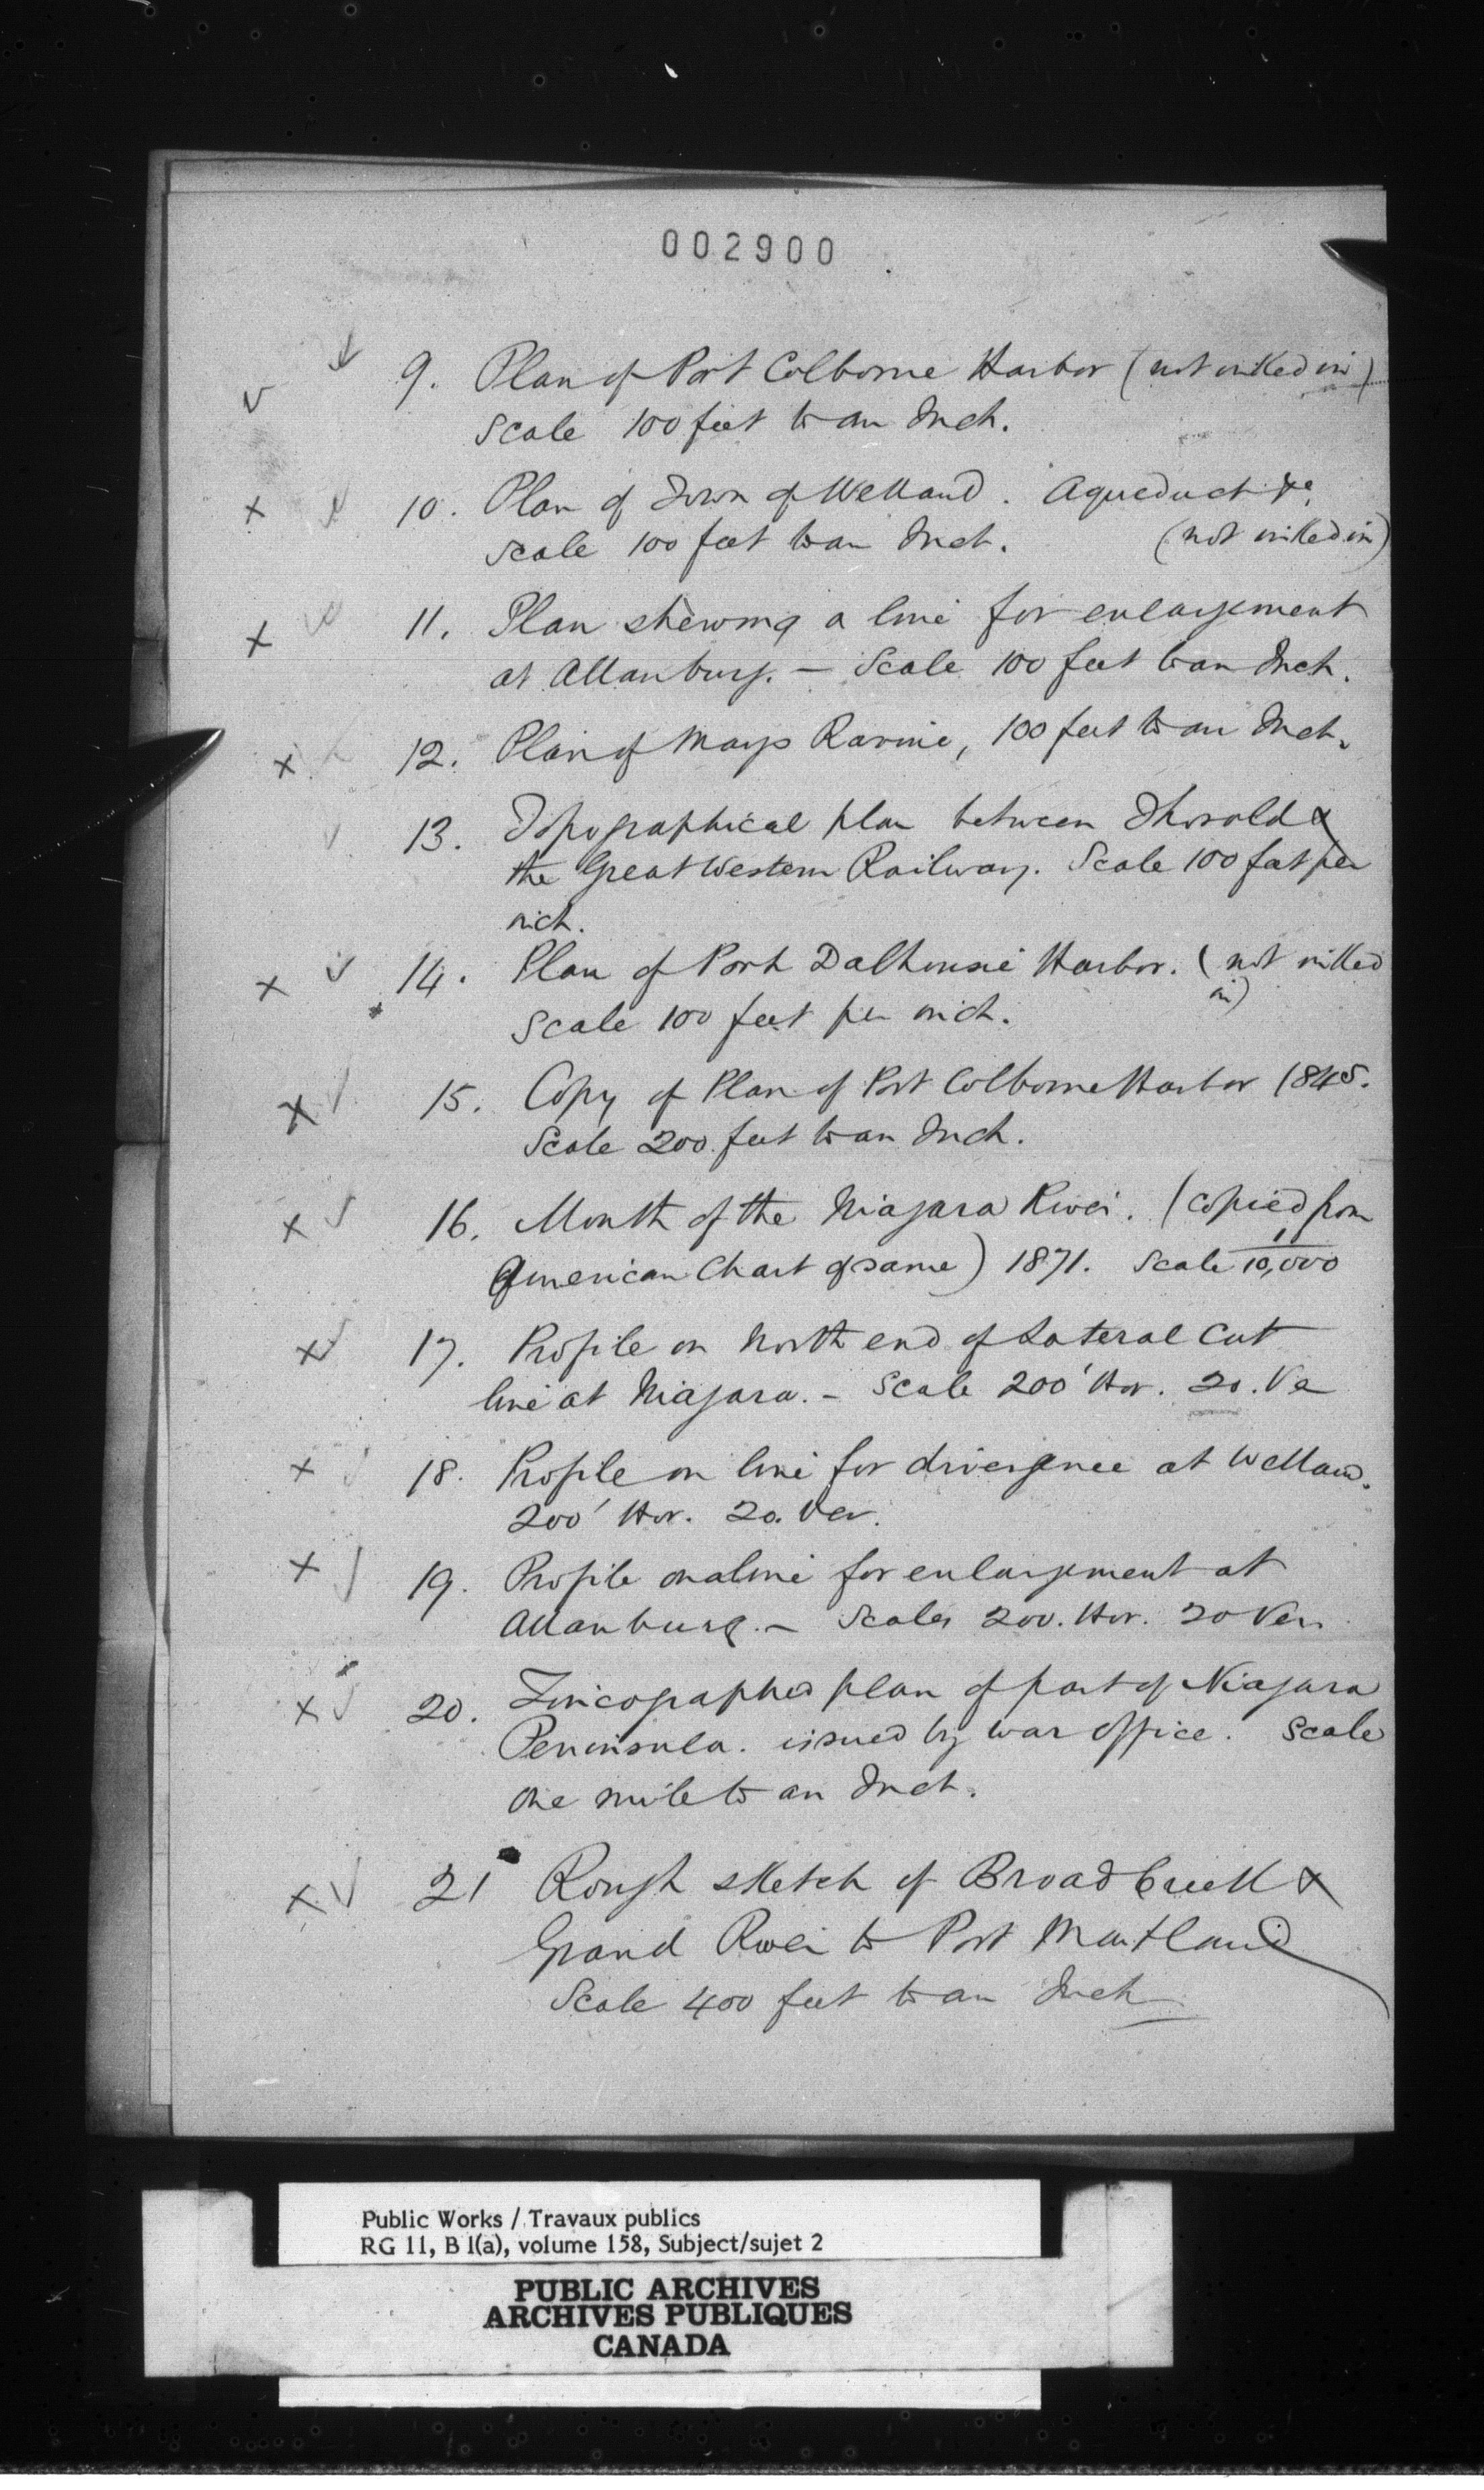 002900
9. Plan of Port Colborne Harbor (not inked in)
Scale 100 feet to an Inch.
10. Plan of Town of Welland. Aqueduct &c.
Scale 100 feet to an Inch. (not inked in)
11. Plan shewing a line for enlargement
at Allanburg. — Scale 100 feet to an Inch.
12. Plan of Mays Ravine, 100 feet to an Inch.
13. Topographical plan between Thorold &
the Great Western Railway. Scale 100 feet per
inch.
14. Plan of Port Dalhousie Harbor. (not inked
in)
Scale 100 feet per inch.
15. Copy of Plan of Port Colborne Harbor 1845.
Scale 200 feet to an Inch.
16. Mouth of the Niagara River. (Copied from
American Chart of same) 1871. Scale 1/10,000
17. Profile on North end of Lateral Cut
line at Niagara. - Scale 200' Hor. 20. Ve
18. Profile on line for divergence at Welland.
200' Hor. 20. Ver.
19. Profile on a line for enlargement at
Allanburg. - Scales 200. Hor. 20 Ver.
20. Zincographed plan of part of Niagara
Peninsula. issued by War Office. Scale
one mile to an Inch.
21 Rough sketch of Broad Creek &
Grand River to Port Maitland
Scale 400 feet to an Inch
Public Works / Travaux publics
RG 11, B 1(a), volume 158, Subject/sujet 2
PUBLIC ARCHIVES
ARCHIVES PUBLIQUES
CANADA